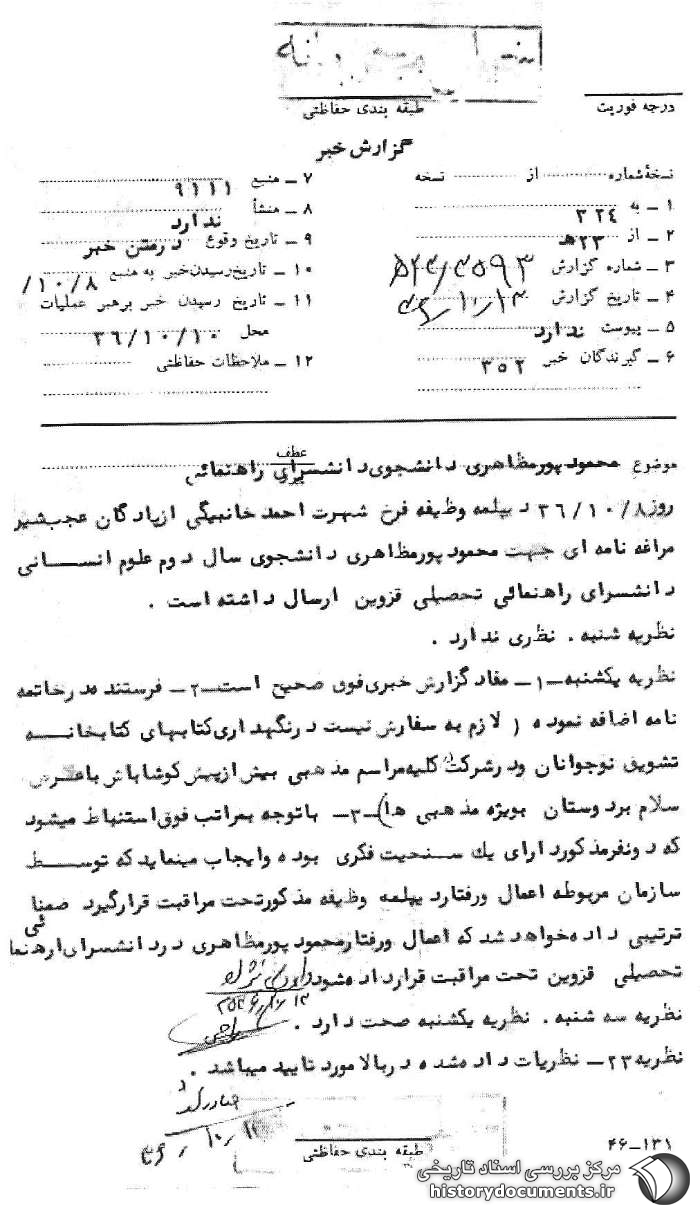 درجه فوریت
طبقه بندی حفاظتی
گزارش خبر
نسخهٔ شماره از نسخه
۱ ـ به ۳۲۴
۲ ـ از ۲۳هـ
۳ ـ شماره گزارش
۴ ـ تاریخ گزارش
۵ ـ پیوست ندارد
۶ ـ گیرندگان خبر ۳۵۲
۷ ـ منبع ۹۱۱۱
۸ ـ منشأ ندارد
۹ ـ تاریخ وقوع درمتن خبر
۱۰ ـ تاریخ رسیدن خبر به منبع ۱۰/۸/
۱۱ ـ تاریخ رسیدن خبر برهبر عملیات
محل ۳۶/۱۰/۱۰
۱۲ ـ ملاحظات حفاظتی
موضوع محمود پورمظاهری دانشجوی دانشسرای راهنمائی
عطف
روز ۳۶/۱۰/۸ دیپلمه وظیفه فرخ شهرت احمد خانبیگی ازپادگان عجبشیر
مراغه نامه ای جهت محمود پورمظاهری دانشجوی سال دوم علوم انسانی
دانشسرای راهنمائی تحصیلی قزوین ارسال داشته است .
نظریه شنبه . نظری ندارد .
نظریه یکشنبه ـ۱ـ مفاد گزارش خبری فوق صحیح است ـ۲ـ فرستنده درخاتمه
نامه اضافه نموده ( لازم به سفارش نیست درنگهداری کتابهای کتابخانه
تشویق نوجوانان ودرشرکت در کلیه مراسم مذهبی بیش ازپیش کوشاباش باعرض
سلام بردوستان بویژه مذهبی ها) ـ۳ـ باتوجه بمراتب فوق استنباط میشود
که دونفرمذکوردارای یك سنخیت فکری بوده وایجاب مینماید که توسط
سازمان مربوطه اعمال ورفتاردیپلمه وظیفه مذکورتحت مراقبت قرارگیرد ضمنا
ترتیبی داده خواهد شد که اعمال ورفتارمحمود پورمظاهری دردانشسرای راهنمائی
تحصیلی قزوین تحت مراقبت قرارداده شود
نظریه سه شنبه . نظریه یکشنبه صحت دارد .
نظریه ۲۳ـ نظریات داده شده دربالا مورد تایید میباشد .
طبقه بندی حفاظتی
۴۶ـ۱۳۱
مرکز بررسی اسناد تاریخی
historydocuments.ir